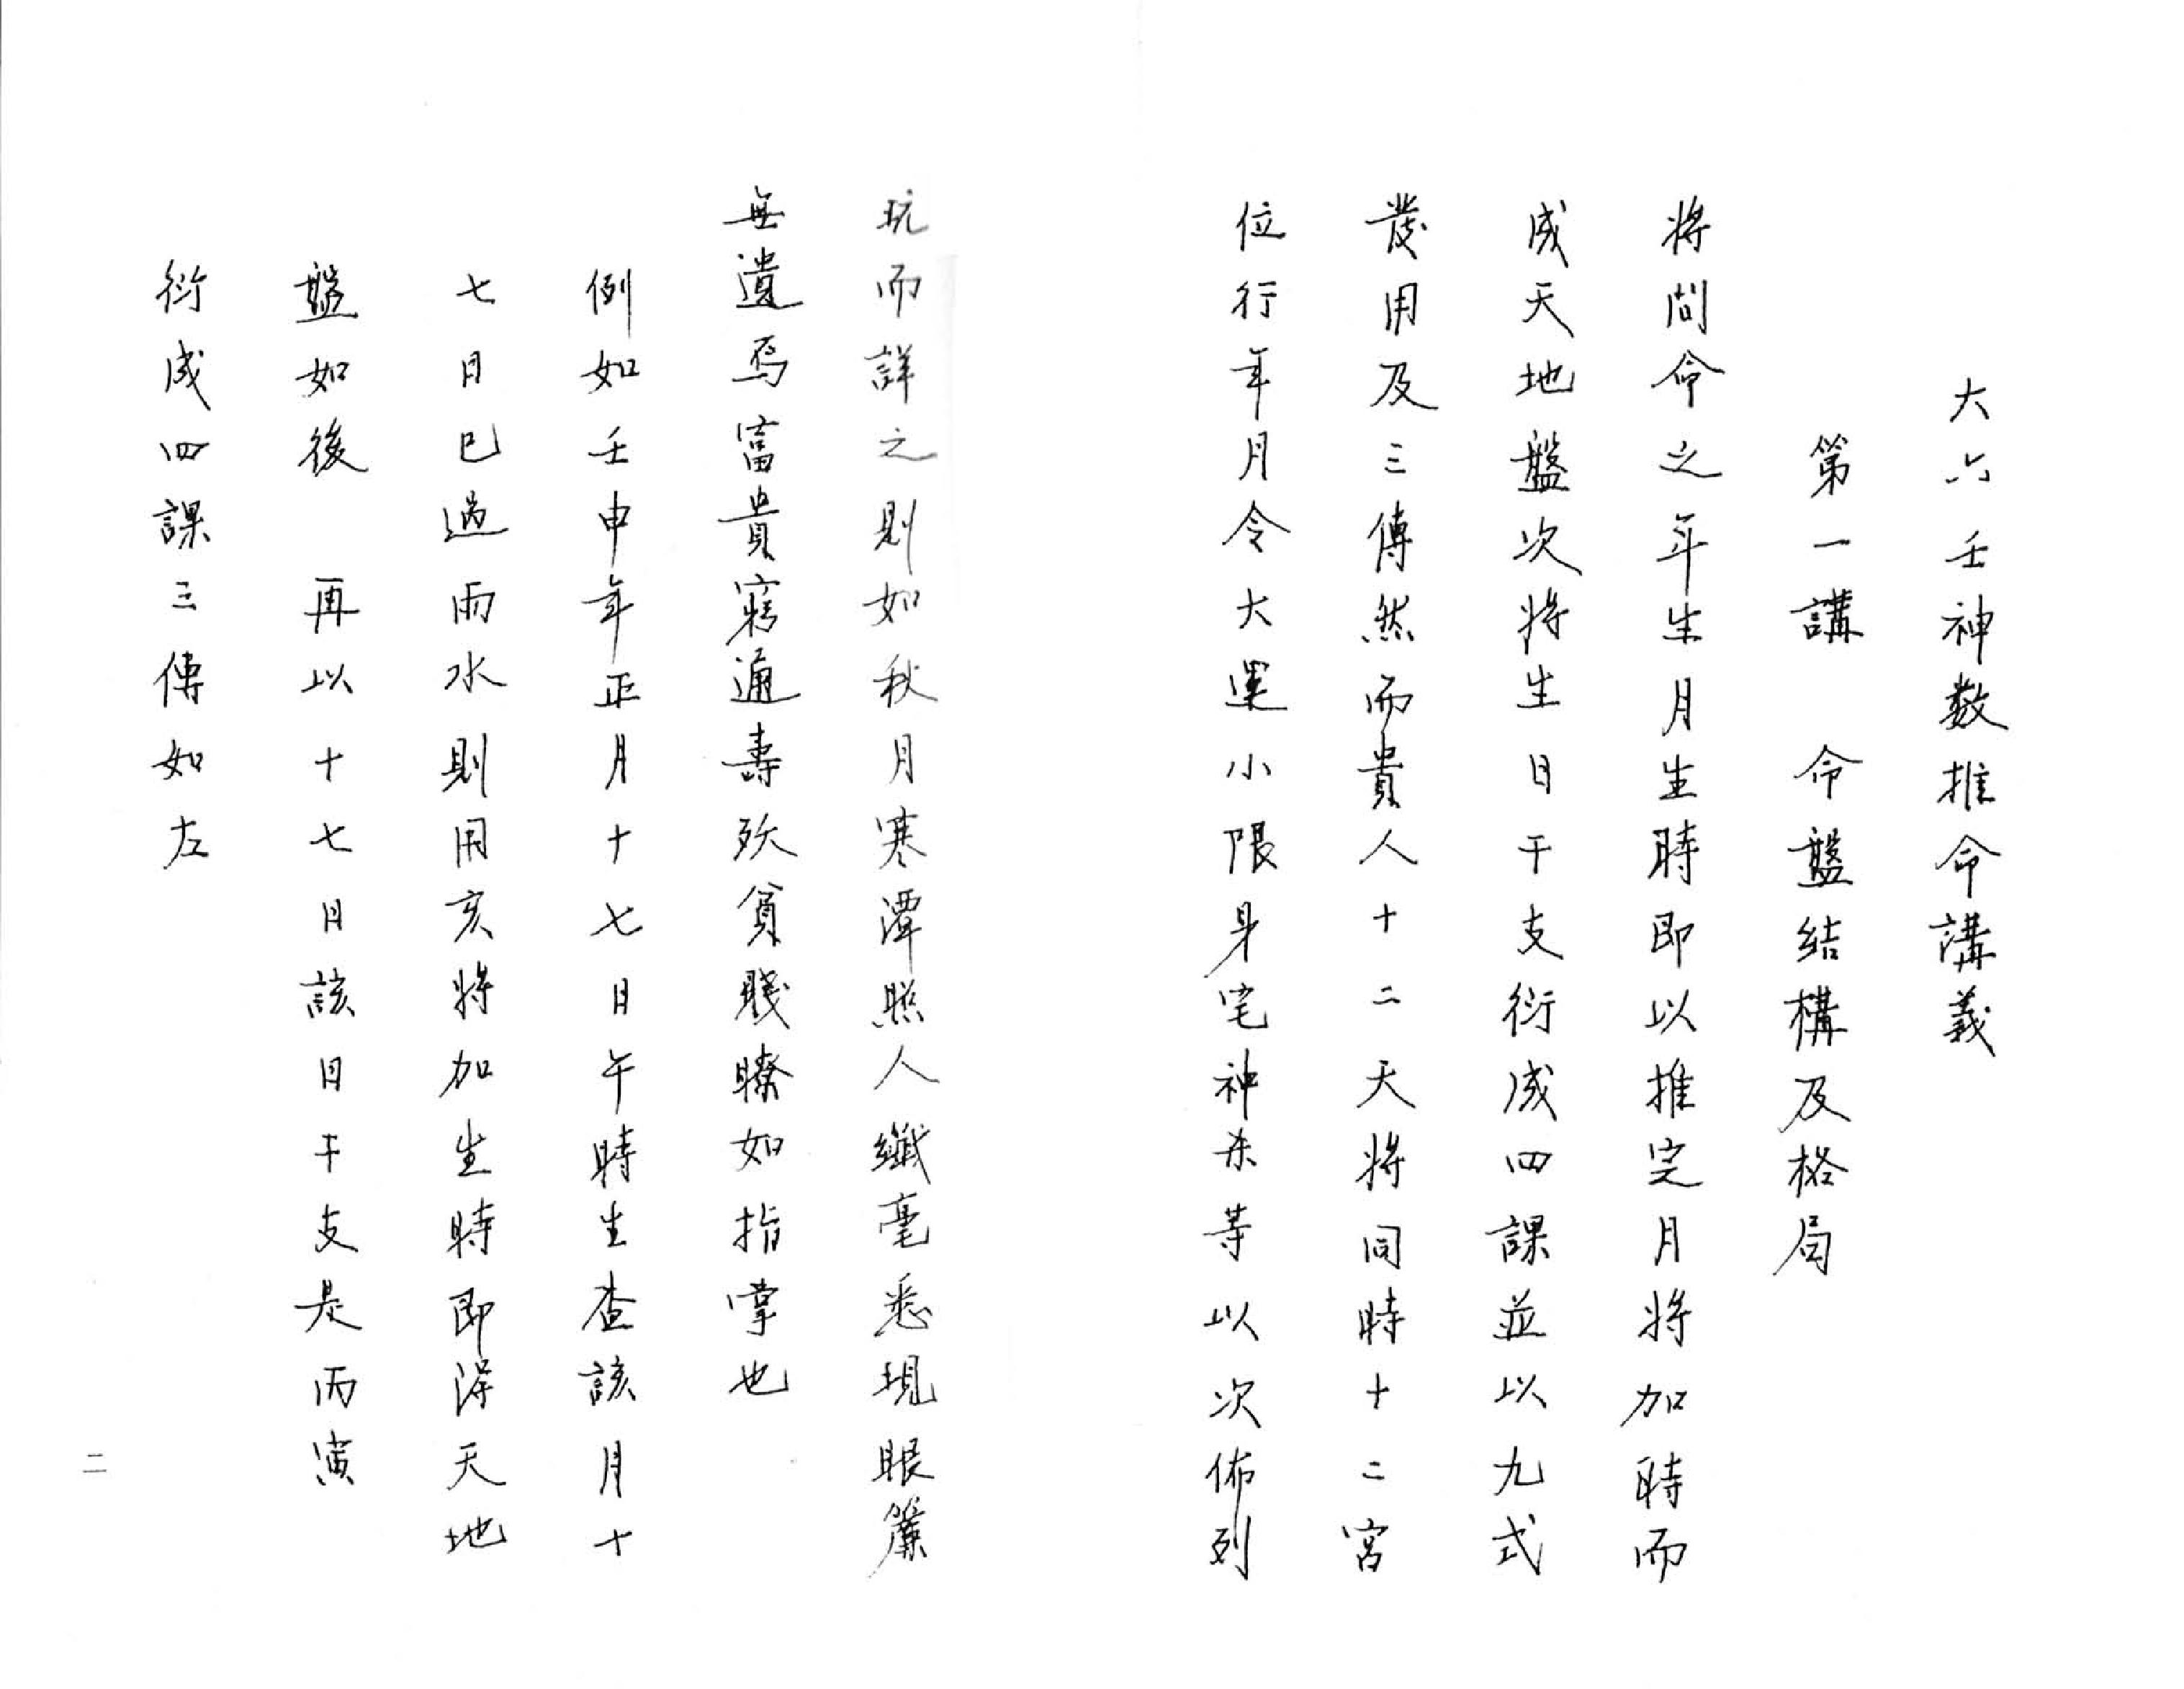 大六壬神数推命講義
第一講　命盤結構及格局
將問命之年生月生時即以推定月將加時而
成天地盤次將生日干支衍成四課並以九式
發用及三傳然而貴人十二天將同時十二宮
位行年月令大運小限身宅神杀等以次佈列
玩而詳之則如秋月寒潭照人纖毫悉現眼簾
無遺焉富貴窮通壽殀貧賤瞭如指掌也
例如壬申年正月十七日午時生查該月十
七日已過雨水則用亥將加生時即得天地
盤如後　再以十七日該日干支是丙寅
衍成四課三傳如左
二